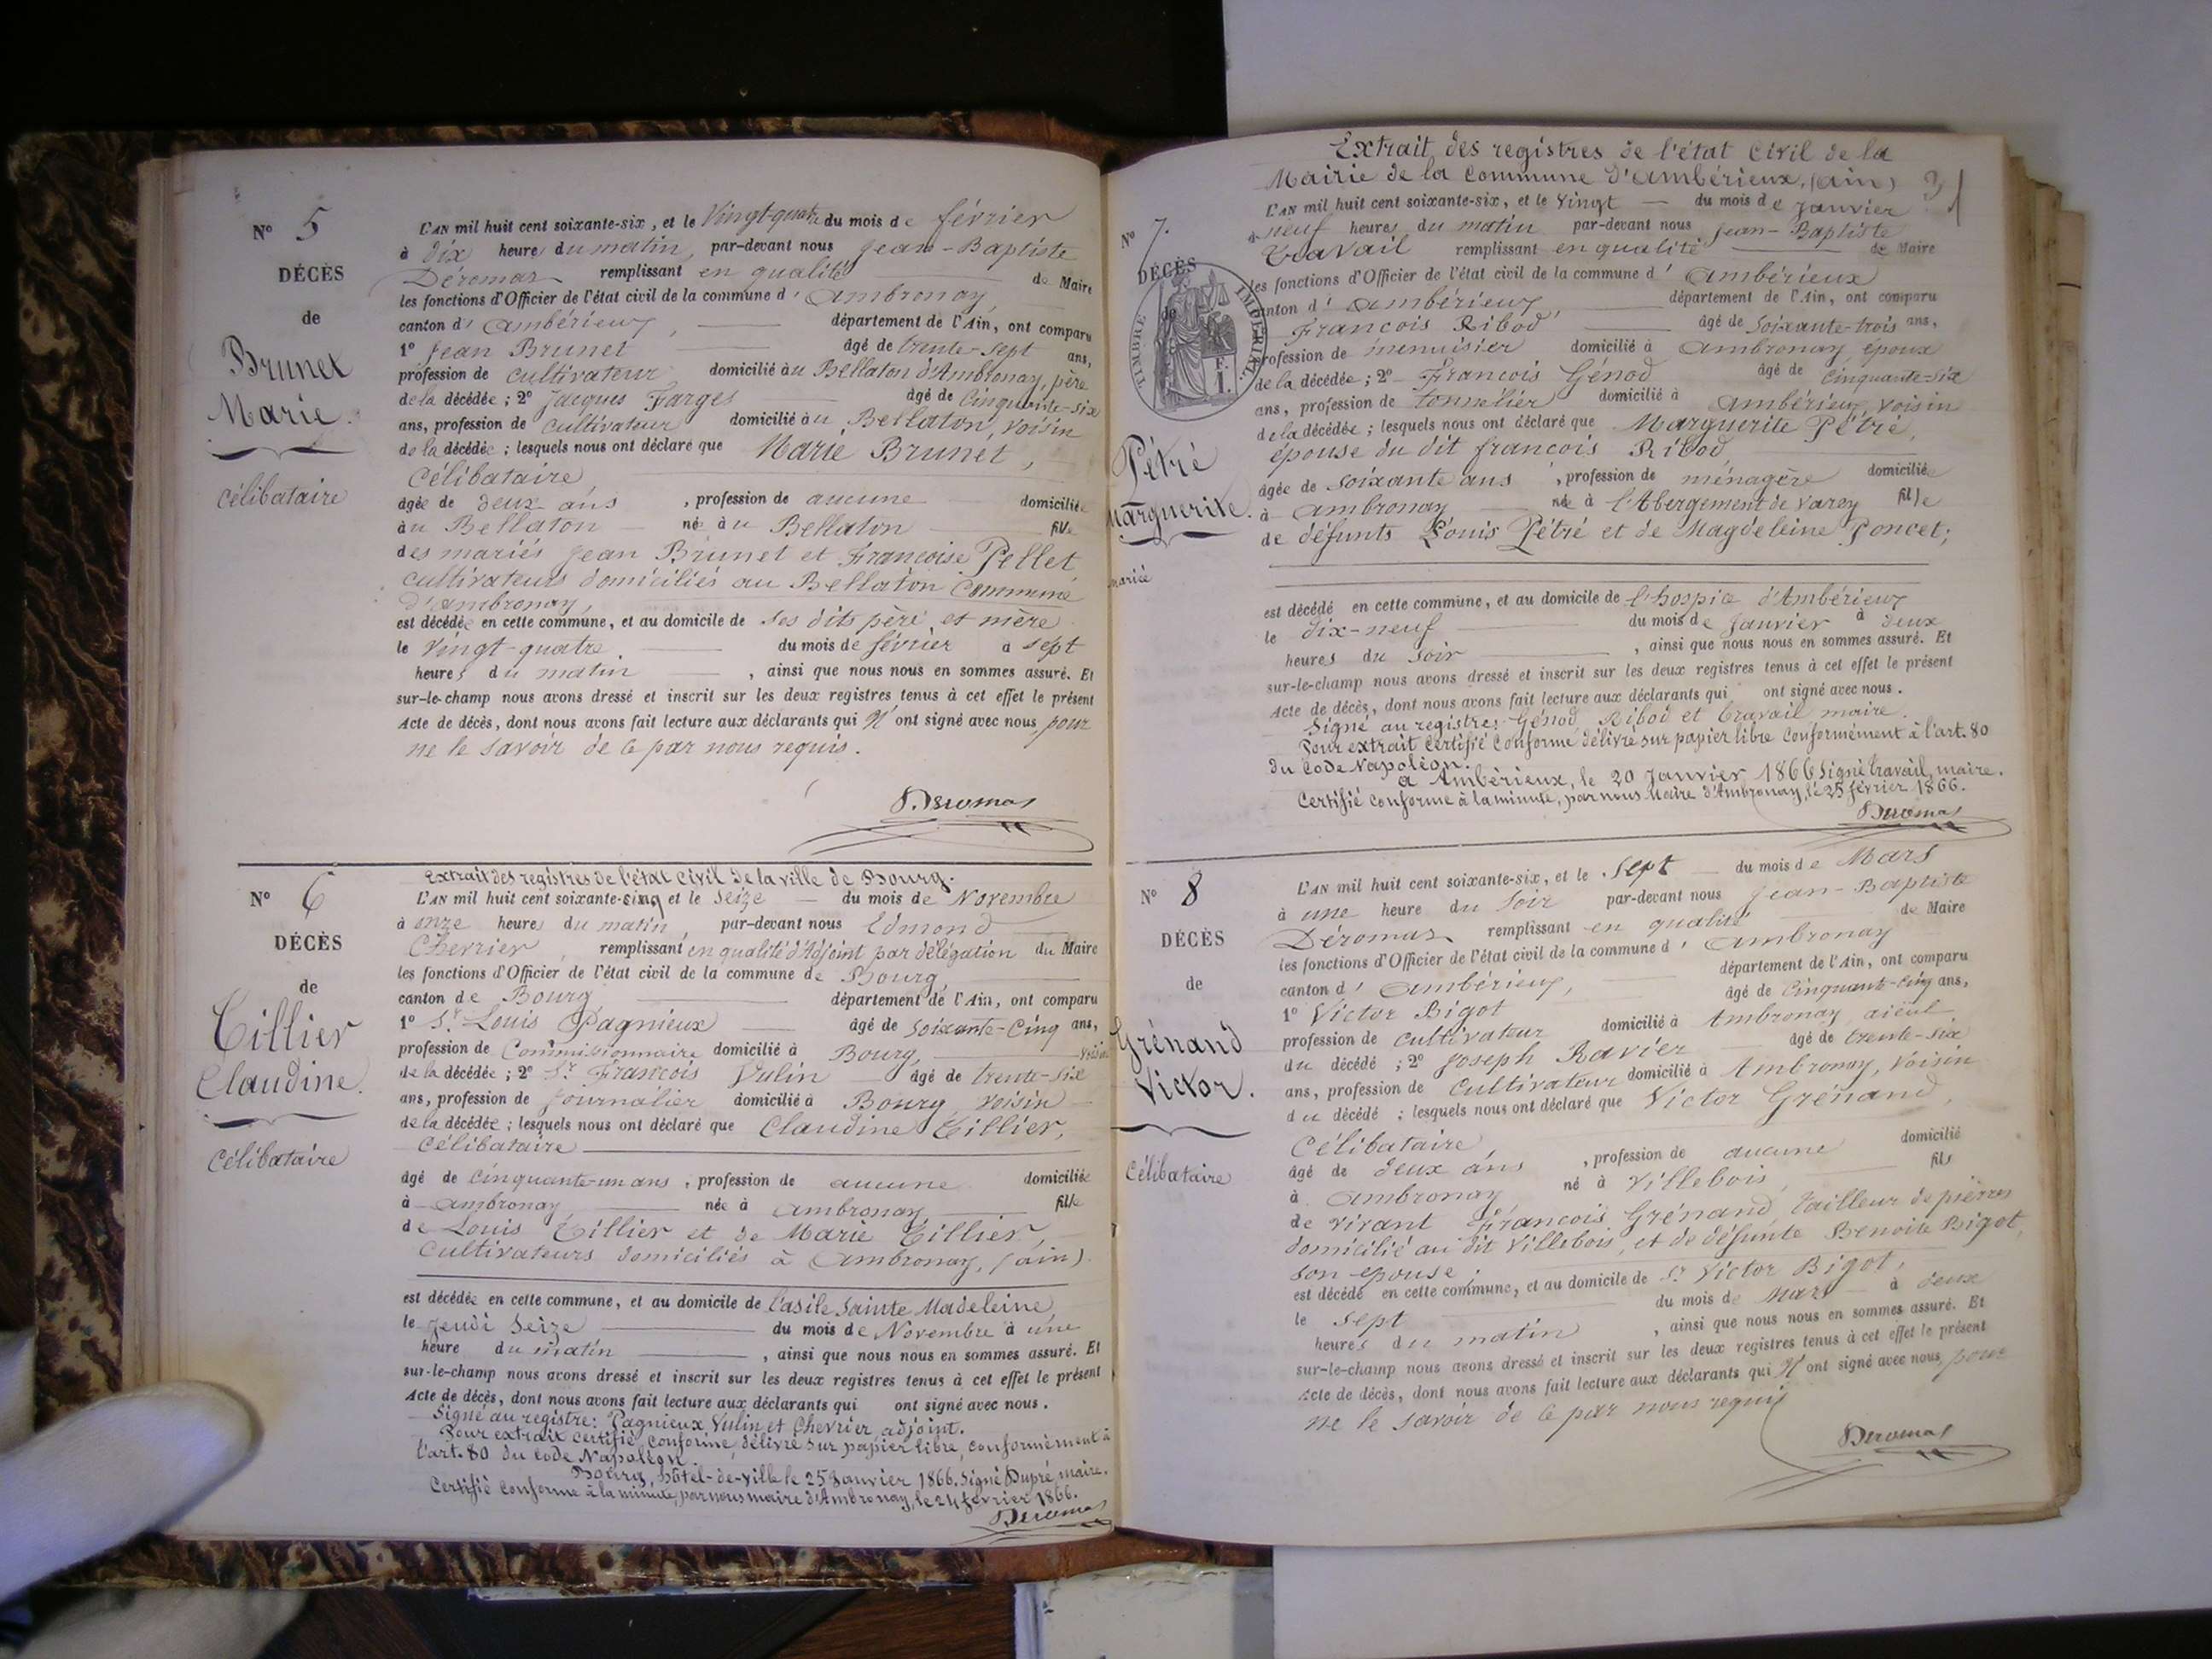 N° 5
DÉCÈS
de
Brunet
Marie.
célibataire
L'AN mil huit cent soixante-six, et le Vingt-quatre du mois de février
à dix heures du matin, par-devant nous Jean-Baptiste
Déromas remplissant en qualité de Maire
les fonctions d'Officier de l'état civil de la commune d'Ambronay,
canton d'Ambérieux, département de l'Ain, ont comparu
1° Jean Brunet âgé de trente-sept ans,
profession de cultivateur domicilié au Bellaton d'Ambronay, père
de la décédée ; 2° Jacques Farges âgé de Cinquante-six
ans, profession de cultivateur domicilié au Bellaton, voisin
de la décédée ; lesquels nous ont déclaré que Marie Brunet,
Célibataire,
âgée de deux ans, profession de aucune domiciliée
au Bellaton née au Bellaton fille
des mariés Jean Brunet et Françoise Pellet
cultivateurs domiciliés au Bellaton Commune
d'Ambronay,
est décédée en cette commune, et au domicile de ses dits père et mère
le Vingt-quatre du mois de février à sept
heures du matin, ainsi que nous nous en sommes assuré. Et
sur-le-champ nous avons dressé et inscrit sur les deux registres tenus à cet effet le présent
Acte de décès, dont nous avons fait lecture aux déclarants qui N'ont signé avec nous, pour
ne le savoir de ce par nous requis.
Deromas
N° 6
DÉCÈS
de
Tillier
Claudine.
Célibataire
Extrait des registres de l'état civil de la ville de Bourg.
L'AN mil huit cent soixante-cinq et le Seize du mois de Novembre
à onze heures du matin, par-devant nous Edmond
Chevrier, remplissant en qualité d'Adjoint par délégation du Maire
les fonctions d'Officier de l'état civil de la commune de Bourg,
canton de Bourg département de l'Ain, ont comparu
1° Sr Louis Pagnieux âgé de soixante-Cinq ans,
profession de Commissionnaire domicilié à Bourg, voisin
de la décédée ; 2° Sr François Vulin âgé de trente-six
ans, profession de journalier domicilié à Bourg, voisin
de la décédée ; lesquels nous ont déclaré que Claudine Tillier,
célibataire
âgé de Cinquante-un ans, profession de aucune domiciliée
à Ambronay, née à Ambronay fille
de Louis Tillier et de Marie Tillier,
Cultivateurs domiciliés à Ambronay, (ain).
est décédée en cette commune, et au domicile de l'asile Sainte Madeleine,
le Jeudi Seize du mois de Novembre à une
heure du matin, ainsi que nous nous en sommes assuré. Et
sur-le-champ nous avons dressé et inscrit sur les deux registres tenus à cet effet le présent
Acte de décès, dont nous avons fait lecture aux déclarants qui ont signé avec nous.
Signé au registre: Pagnieux Vulin et Chevrier, adjoint.
Pour extrait certifié conforme, délivré sur papier libre, conformément à
l'art. 80 du Code Napoléon.
Bourg, hôtel-de-ville le 25 Janvier 1866. Signé Dupré, maire.
Certifié conforme à la minute, par nous maire d'Ambronay, le 24 février 1866.
Deromas
Extrait des registres de l'état civil de la
Mairie de la Commune d'Ambérieux, (ain)
N° 7.
DÉCÈS
de
TIMBRE IMPÉRIAL
F.
1.
Pétré
Marguerite.
mariée
L'AN mil huit cent soixante-six, et le Vingt du mois de Janvier
à neuf heures du matin par-devant nous Jean-Baptiste
Travail remplissant en qualité de Maire
les fonctions d'Officier de l'état civil de la commune d'Ambérieux
canton d'Ambérieux, département de l'Ain, ont comparu
François Ribod âgé de Soixante-trois ans,
profession de menuisier domicilié à Ambronay, époux
de la décédée ; 2° François Génod âgé de Cinquante-six
ans, profession de tonnelier domicilié à Ambérieux, voisin
de la décédée ; lesquels nous ont déclaré que Marguerite Pétré,
épouse du dit françois Ribod
âgée de soixante ans, profession de ménagère domiciliée
à Ambronay née à l'Abergement de Varey fille
de défunts Louis Pétré et de Magdeleine Poncet;
est décédé en cette commune, et au domicile de l'hospice d'Ambérieux
le dix-neuf du mois de Janvier à deux
heures du soir, ainsi que nous nous en sommes assuré. Et
sur-le-champ nous avons dressé et inscrit sur les deux registres tenus à cet effet le présent
Acte de décès, dont nous avons fait lecture aux déclarants qui ont signé avec nous.
Signé au registre: Génod, Ribod et Travail maire.
Pour extrait Certifié Conforme délivré sur papier libre Conformément à l'art. 80
du Code Napoléon.
a Ambérieux, le 20 Janvier 1866 Signé Travail, maire.
Certifié conforme à la minute, par nous Maire d'Ambronay, le 25 février 1866.
Deromas
N° 8
DÉCÈS
de
Grénand
Victor.
Célibataire
L'AN mil huit cent soixante-six, et le Sept du mois de Mars
à une heure du soir par-devant nous Jean-Baptiste
Déromas remplissant en qualité de Maire
les fonctions d'Officier de l'état civil de la commune d'Ambronay
canton d'Ambérieux, département de l'Ain, ont comparu
1° Victor Bigot âgé de Cinquante-Cinq ans,
profession de cultivateur domicilié à Ambronay aieul
du décédé ; 2° Joseph Ravier âgé de trente-six
ans, profession de Cultivateur domicilié à Ambronay, voisin
du décédé ; lesquels nous ont déclaré que Victor Grénand,
Célibataire
âgé de deux ans, profession de aucune domicilié
à Ambronay né à Villebois, fils
de vivant François Grénand tailleur de pierres
domicilié au dit Villebois, et de défunte Benoite Bigot,
son épouse,
est décédé en cette commune, et au domicile de Sr Victor Bigot,
le sept du mois de Mars à deux
heures du matin, ainsi que nous nous en sommes assuré. Et
sur-le-champ nous avons dressé et inscrit sur les deux registres tenus à cet effet le présent
Acte de décès, dont nous avons fait lecture aux déclarants qui N'ont signé avec nous, pour
ne le savoir de ce par nous requis
Deromas